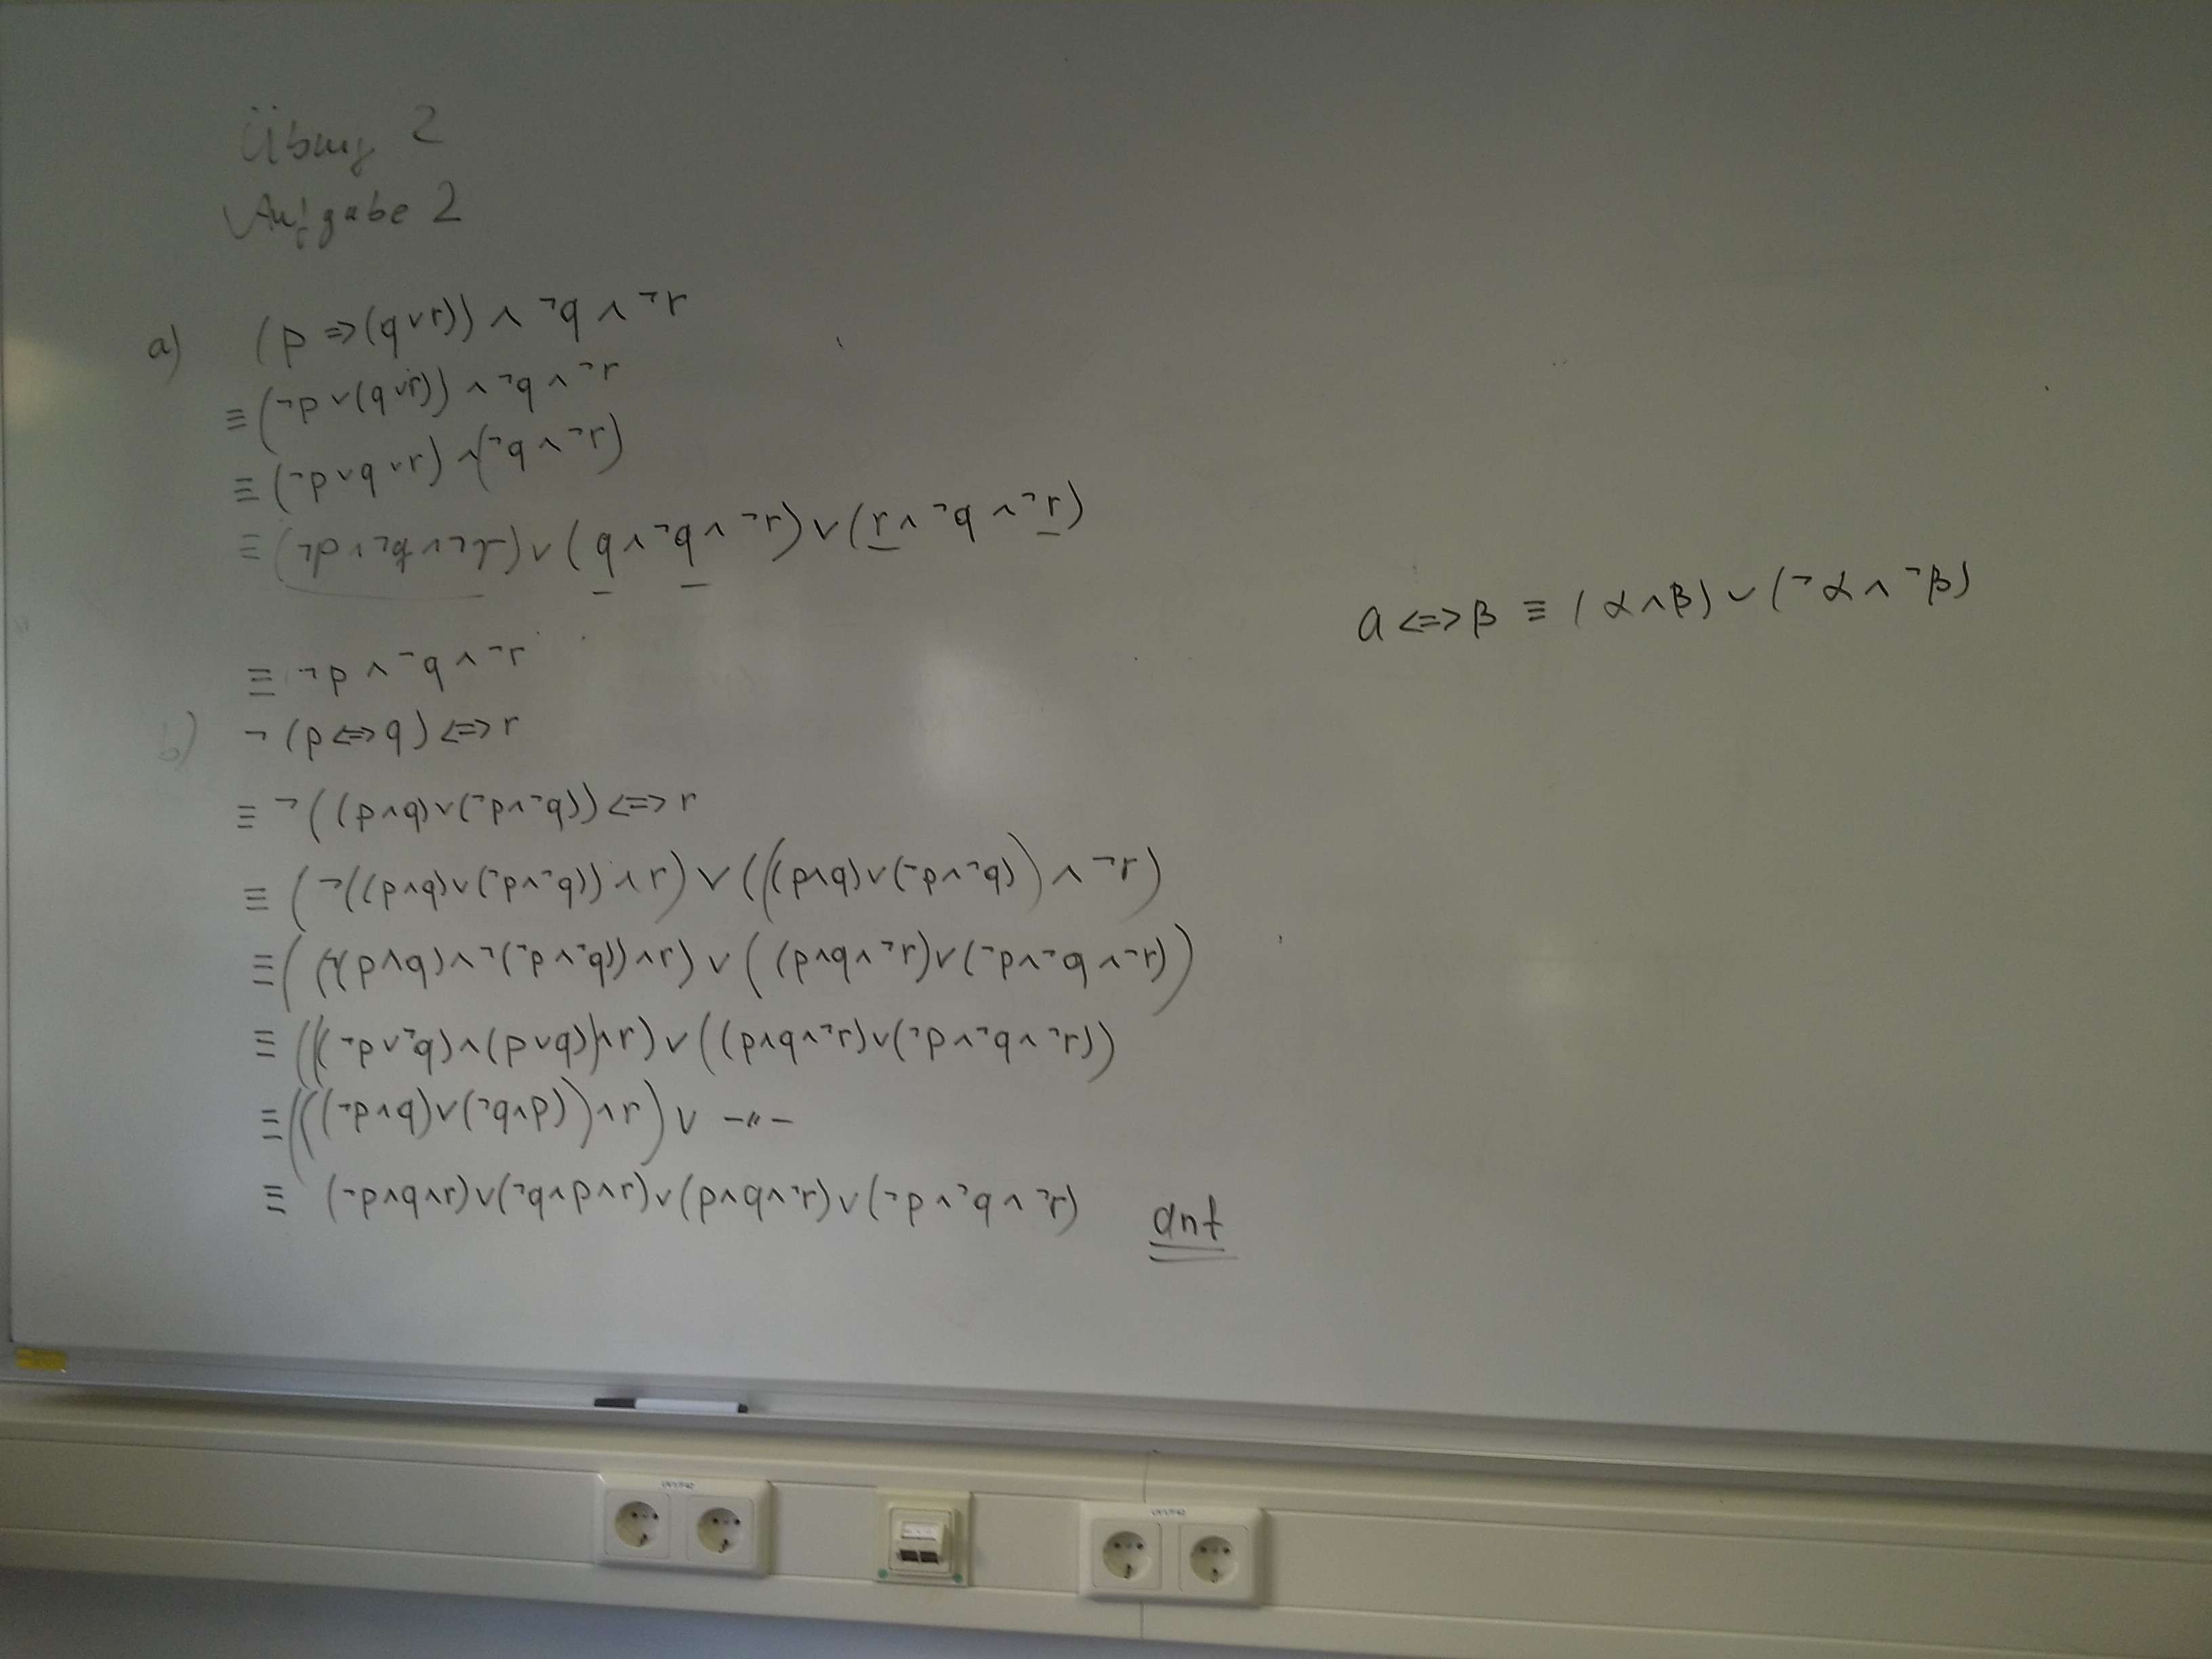 Übung 2
Aufgabe 2
a) (p => (q ∨ r)) ∧ ¬q ∧ ¬r
≡ (¬p ∨ (q ∨ r)) ∧ ¬q ∧ ¬r
≡ (¬p ∨ q ∨ r) ∧ (¬q ∧ ¬r)
≡ (¬p ∧ ¬q ∧ ¬r) ∨ (q ∧ ¬q ∧ ¬r) ∨ (r ∧ ¬q ∧ ¬r)
≡ ¬p ∧ ¬q ∧ ¬r
b) ¬(p <=> q) <=> r
≡ ¬((p ∧ q) ∨ (¬p ∧ ¬q)) <=> r
≡ (¬((p ∧ q) ∨ (¬p ∧ ¬q)) ∧ r) ∨ (((p ∧ q) ∨ (¬p ∧ ¬q)) ∧ ¬r)
≡ ((¬(p ∧ q) ∧ ¬(¬p ∧ ¬q)) ∧ r) ∨ ((p ∧ q ∧ ¬r) ∨ (¬p ∧ ¬q ∧ ¬r))
≡ (((¬p ∨ ¬q) ∧ (p ∨ q)) ∧ r) ∨ ((p ∧ q ∧ ¬r) ∨ (¬p ∧ ¬q ∧ ¬r))
≡ (((¬p ∧ q) ∨ (¬q ∧ p)) ∧ r) ∨ –"–
≡ (¬p ∧ q ∧ r) ∨ (¬q ∧ p ∧ r) ∨ (p ∧ q ∧ ¬r) ∨ (¬p ∧ ¬q ∧ ¬r) dnf
α <=> β ≡ (α ∧ β) ∨ (¬α ∧ ¬β)